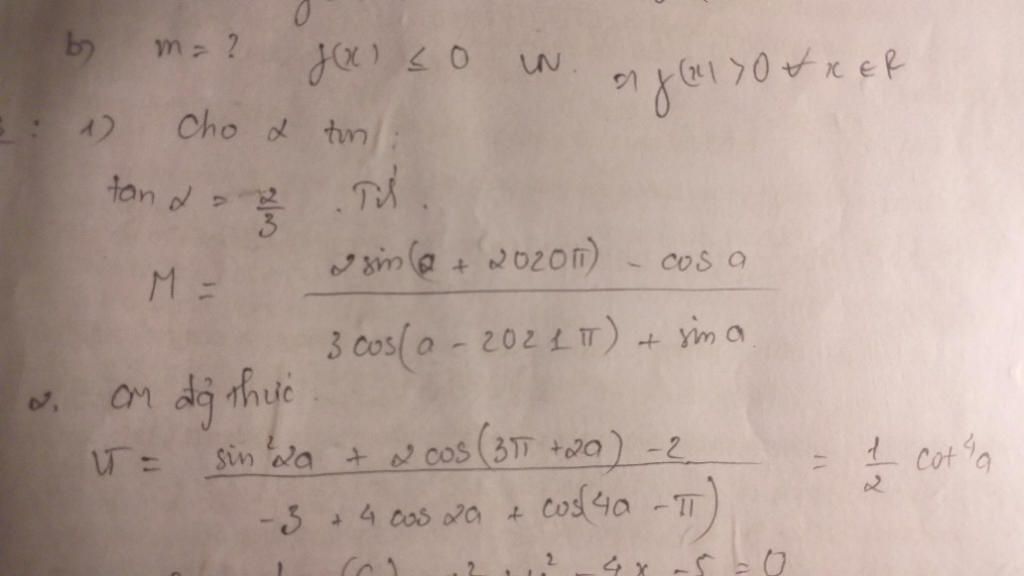 b) m = ? f(x) ≤ 0 VN. ⇒ f(x) > 0 ∀ x ∈ R
: 1) Cho α tm :
tan α = 2/3 .
M = (2 sin(a + 2020π) - cos a) / (3 cos(a - 2021π) + sin a)
2. CM thức
VT = (sin²2a + 2 cos(3π + 2a) - 2) / (-3 + 4 cos 2a + cos(4a - π)) = 1/2 cot⁴a
- 4x - 5 = 0